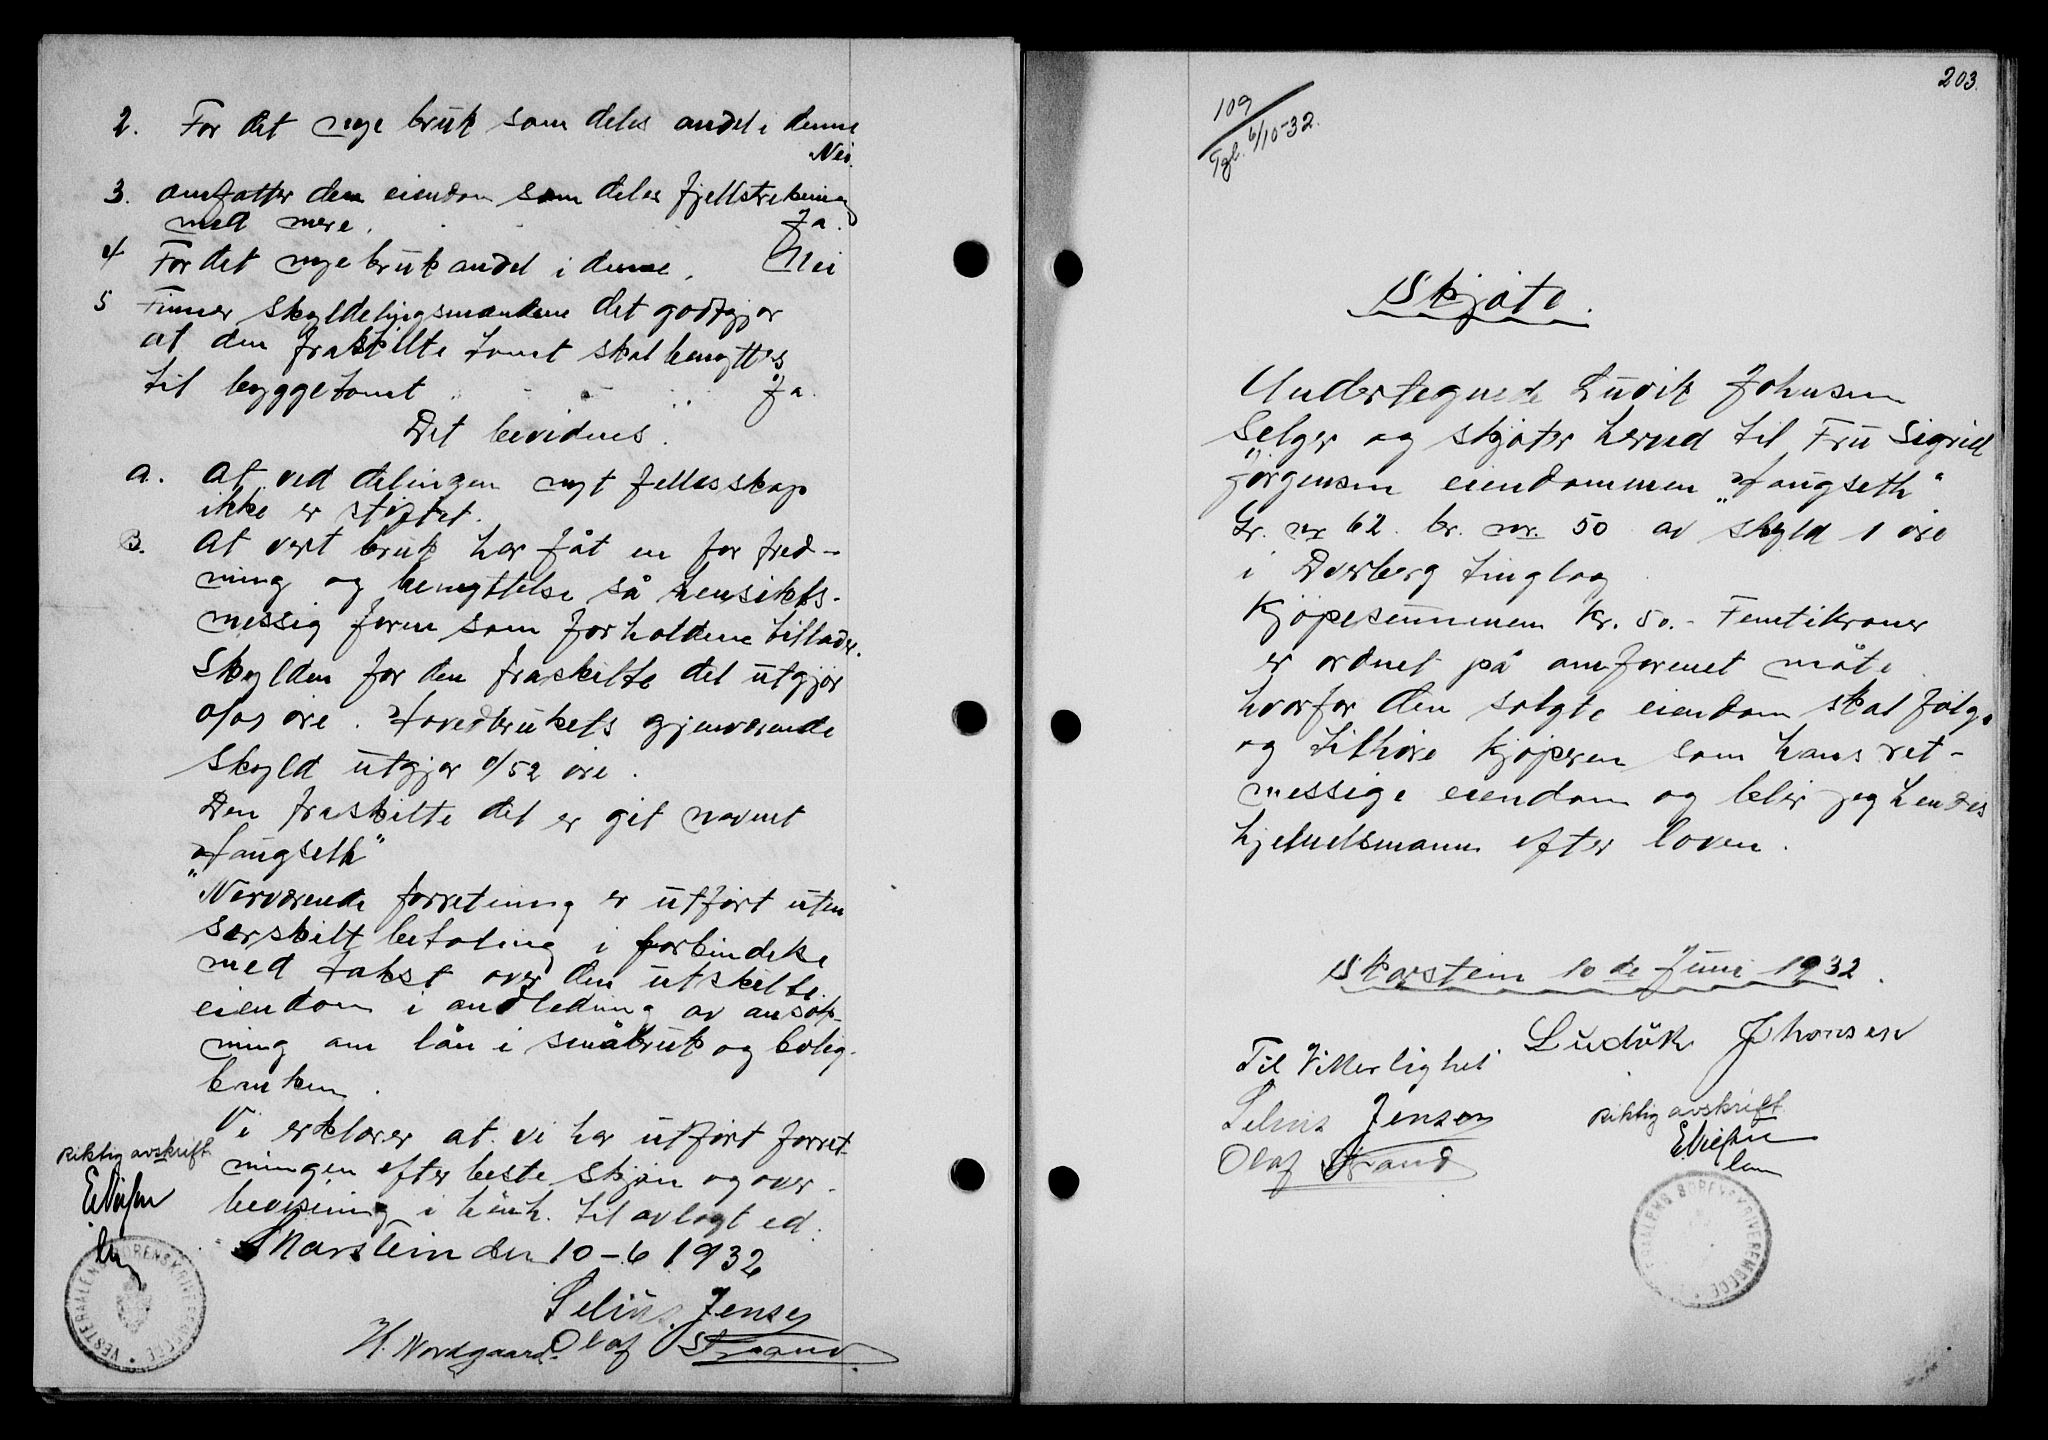 2. For det nye bruk som deles andel i denne
Nei.
3. omfatter den eiendom som deles fjellstrekning
med mere. Ja.
4 Før det nye bruk andel i denne. Nei
5 Finner skyldelingsmændene det godtgjor
at den fraskilte tomt skal benyttes
til byggetomt . . . . Ja.
Det bevidnes.
a. at ved delingen nyt fellesskap
ikke er stiftet.
B. at vert bruk har fåt en for fred-
ning og benyttelse så hensikts-
messig form som forholdene tillader.
Skylden for den fraskilte del utgjør
0/01 øre. Hovedbrukets gjenværende
skyld utgjør 0/52 øre.
Den fraskilte del er git navnet
„Haugseth“
Nerværende forretning er utført uten
særskilt betaling i forbindelse
med takst over den utskilte
eiendom i andledning av ansøk-
ning om lån i småbruk og bolig-
banken.
Vi erklærer at vi har utført forret-
ningen efter beste skjøn og over-
bevisning i henh. til avlagt ed.
Skarstein den 10-6 1932
Selius Jensen
H. Nordgaard. Olaf Strand.
Riktig avskrift
VESTERAALENS SORENSKRIVEREMBEDE
203.
109
Tgl. 6/10-32.
Skjøte.
Undertegnede Ludvik Johnsen
Selger og skjøter herved til Fru Sigrid
Jørgensen eiendommen „Haugseth“
Gr. nr 62. br. nr. 50 av skyld 1 øre
i Dverberg tinglag
Kjøpesummen kr. 50.- Femtikroner
er ordnet på omforenet måte
hvorfor den solgte eiendom skal følge
og tilhøre kjøperen som hans ret-
messige eiendom og blir jeg hendes
hjemelsmann efter loven.
Skarstein 10 de Juni 1932.
Ludvik Jhonsen
Til Vitterlighet
Selius Jensen
Olaf Strand
Riktig avskrift
VESTERAALENS SORENSKRIVEREMBEDE